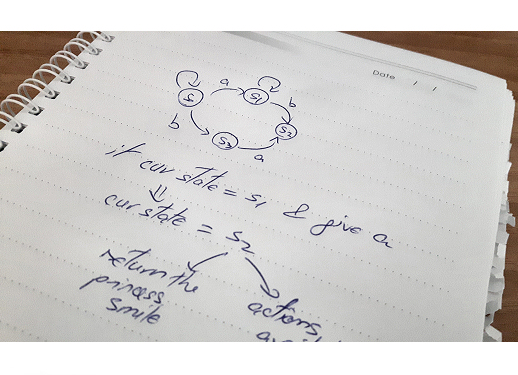 Date / /
a
S
S1
b
b
S3
S2
a
if cur state = S1 & give a
⇓
cur state = S2
return the
princess
smile
actions